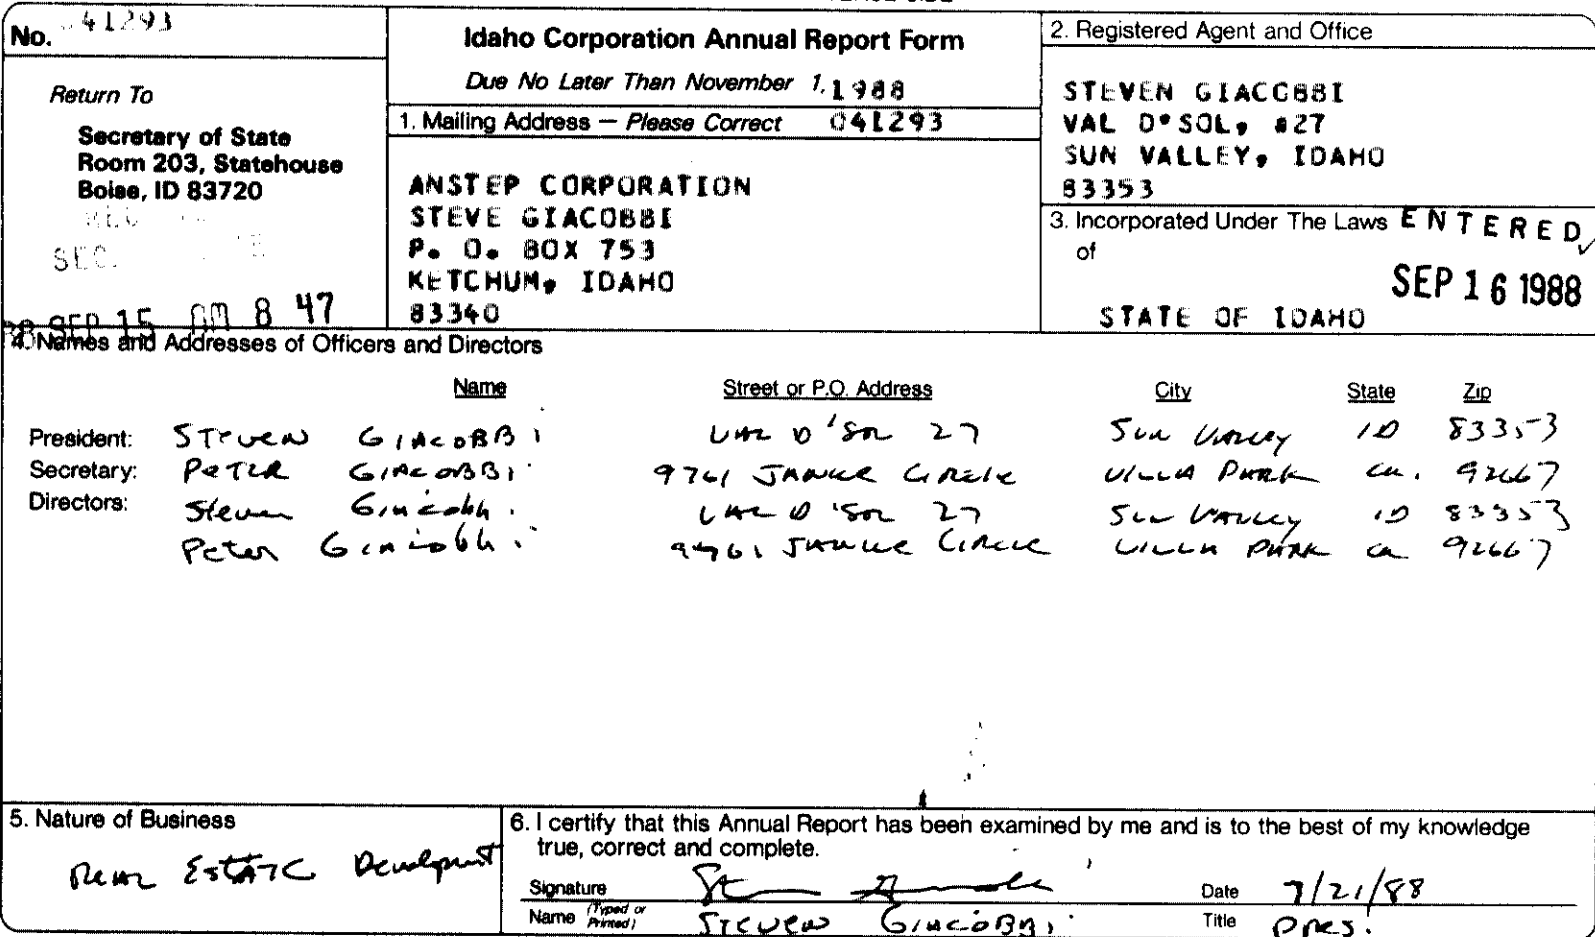 No. 41293
Idaho Corporation Annual Report Form
Due No Later Than November 1, 1988
Return To
Secretary of State
Room 203, Statehouse
Boise, ID 83720
SEC.
SEP 15 AM 8 47
1. Mailing Address — Please Correct 041293
ANSTEP CORPORATION
STEVE GIACOBBI
P. O. BOX 753
KETCHUM, IDAHO
83340
2. Registered Agent and Office
STEVEN GIACOBBI
VAL D'SOL, #27
SUN VALLEY, IDAHO
83353
3. Incorporated Under The Laws
of
ENTERED
SEP 16 1988
STATE OF IDAHO
4. Names and Addresses of Officers and Directors
Name Street or P.O. Address City State Zip
President: STEVEN GIACOBBI VAL D'SOL 27 SUN VALLEY ID 83353
Secretary: PETER GIACOBBI 9761 JANICE CIRCLE VILLA PARK CA. 92667
Directors: Steven Giacobbi VAL D'SOL 27 SUN VALLEY ID 83353
Peter Giacobbi 9761 JANICE CIRCLE VILLA PARK CA 92667
5. Nature of Business
REAL ESTATE Development
6. I certify that this Annual Report has been examined by me and is to the best of my knowledge
true, correct and complete.
Signature Date 7/21/88
Name (Typed or Printed) STEVEN GIACOBBI Title Pres.